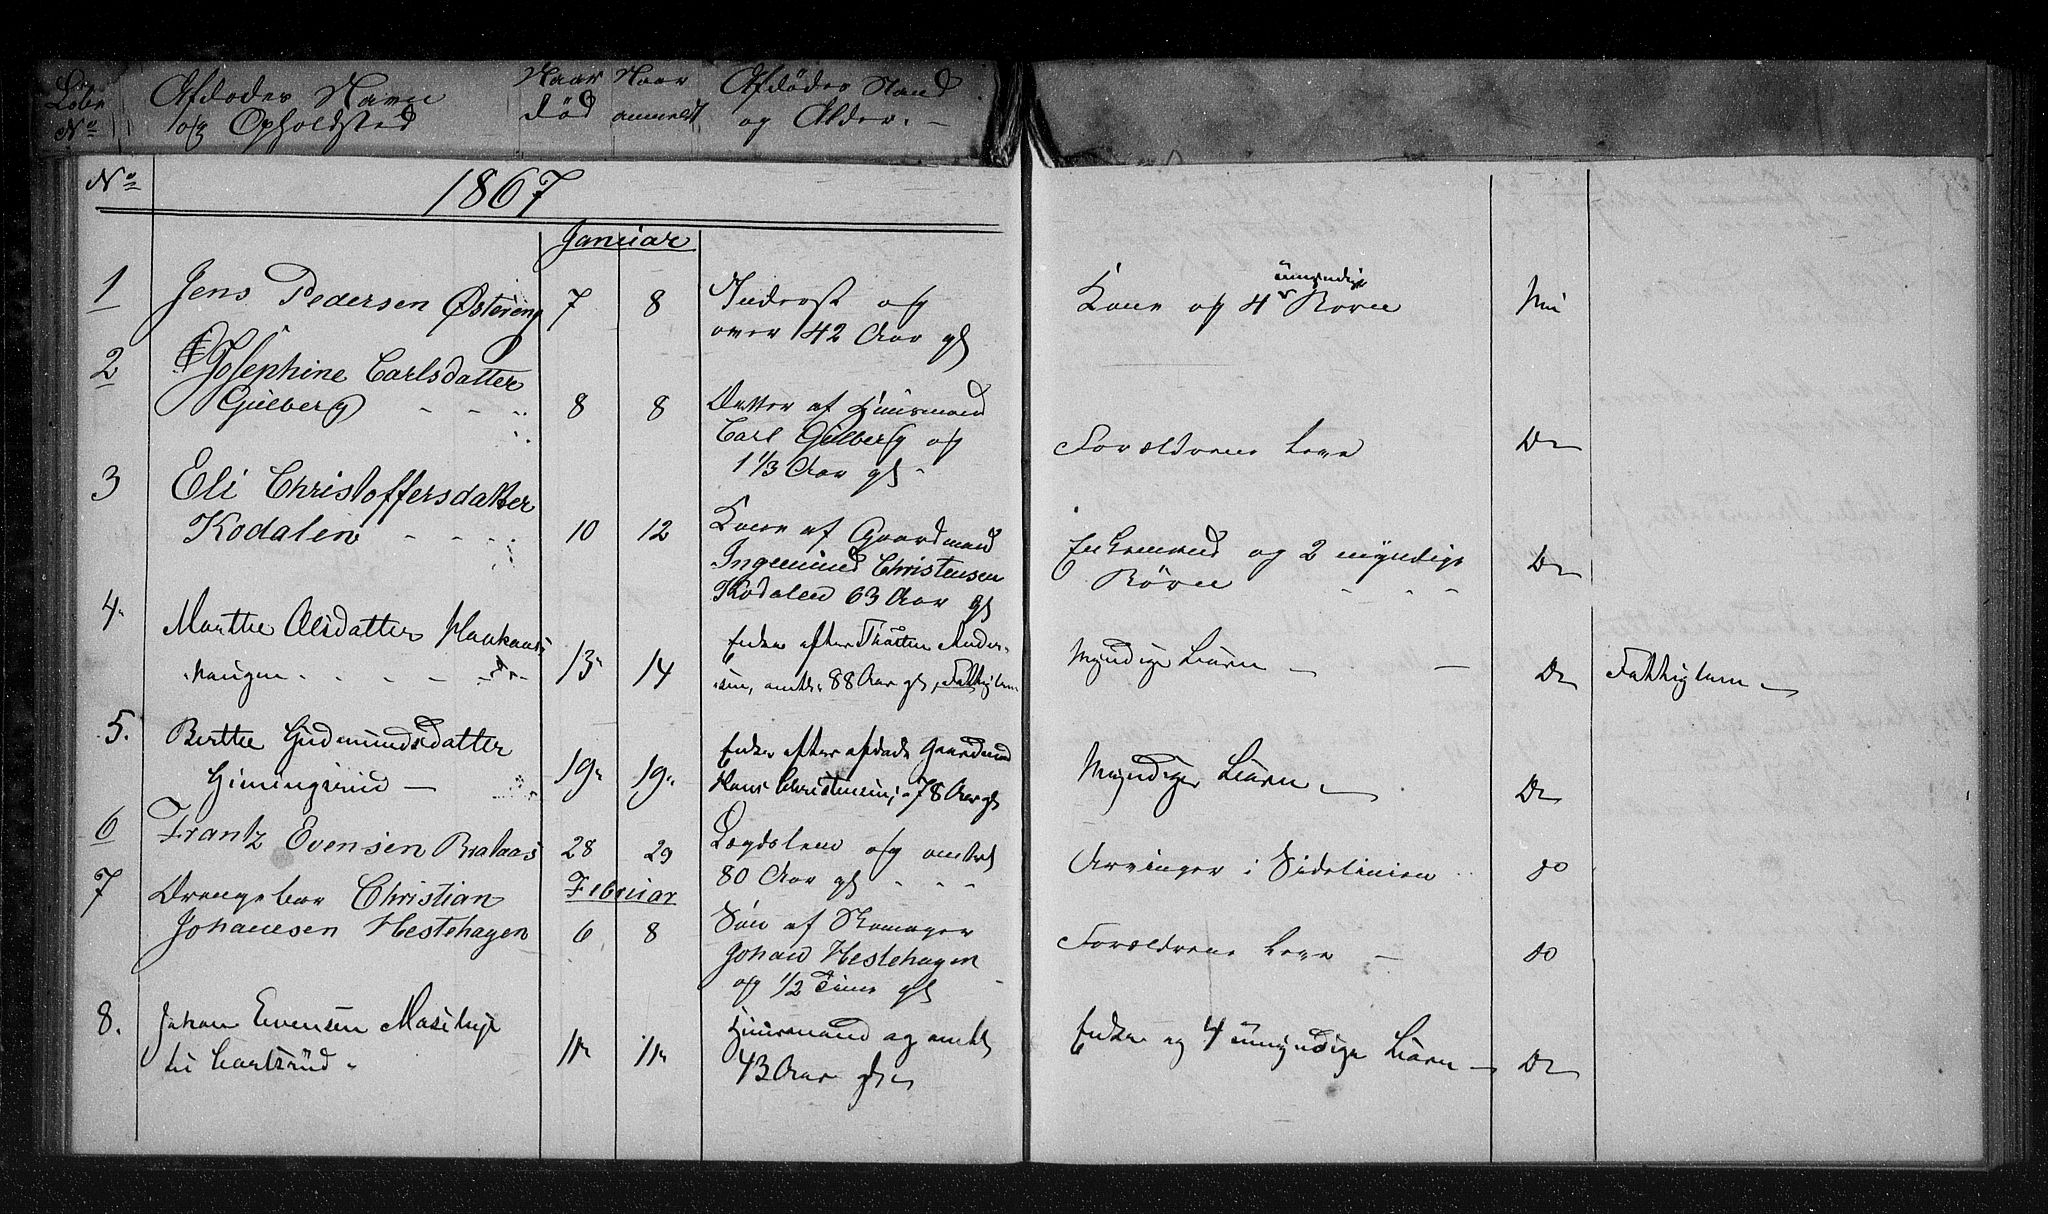 Løbe
No
Afdødes Navn
og Opholdsted
Naar
død
Naar
anmeldt
Afdødes Stand
og Alder.
No 1867
Januar
1 Jens Pedersen Østereng 7 8 Inderst og
over 42 Aar gl
Kone og 4 Børn
umyndige
2 Josephine Carlsdatter
Gulberg 8 8 Datter af Huusmand
Carl Gulberg og
1 1/3 Aar gl
Forældrene leve Do
3 Eli Christoffersdatter
Kodalen 10 12 Kone af Gaardmand
Ingemund Christensen
Kodalen 63 Aar gl
Enkemand og 2 myndige
Børn Do
4. Marthe Olsdatter Haakaas
haugen 13 14 Enke efter Thosten Ander-
sen, omtr. 88 Aar gl, Fattiglem
Myndige Børn Do Fattiglem
5. Berthe Gudmundsdatter
Himingsrud 19 19 Enke efter afdøde Gaardmd
Hans Christensen, 78 Aar gl
Myndige Børn Do
6 Frantz Evensen Brataas 28 29 Lægdslem og omtrent
80 Aar gl
Arvinger i Sidelinien do
Februar
7 Drengebar Christian
Johanesen Hestehagen 6 8 Søn af Skomager
Johan Hestehagen
og 1/2 Time gl
Forældrene leve do
8. Johan Evensen
til Carlsrud 11 11 Huusmand og omtr
43 Aar gl
Enke og 4 umyndige Børn Do